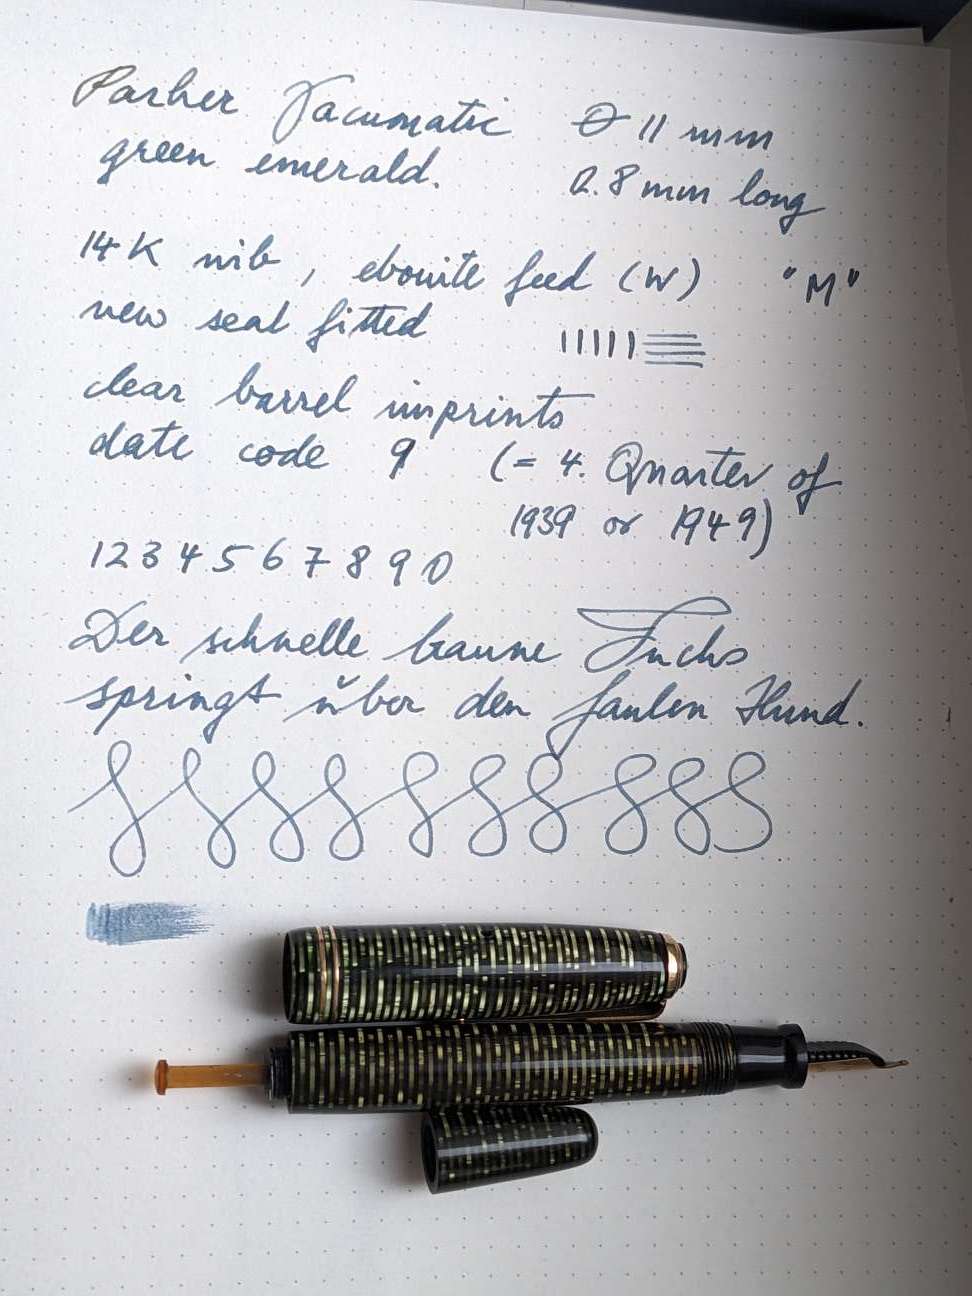 Parker Vacumatic ⌀ 11 mm
green emerald. 12.8 mm long
14 K nib, ebonite feed (W) "M"
new seal fitted
clear barrel imprints
date code 9 (= 4. Quarter of
1939 or 1949)
1 2 3 4 5 6 7 8 9 0
Der schnelle braune Fuchs
springt über den faulen Hund.